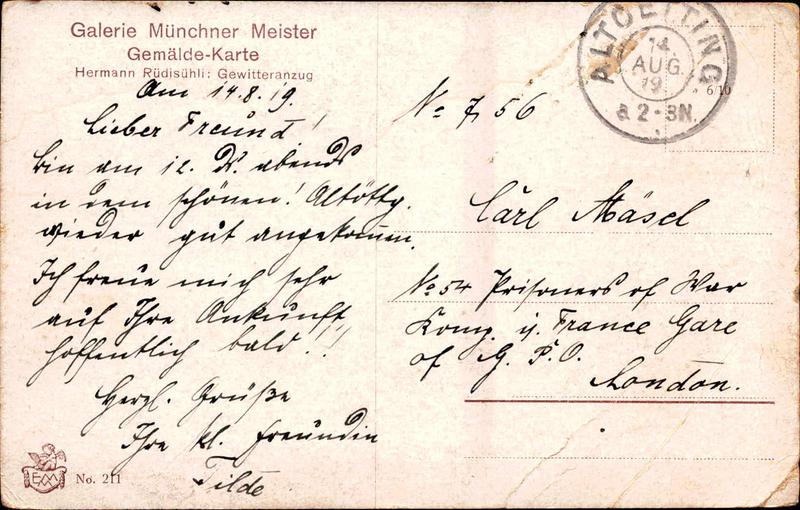 Galerie Münchner Meister
Gemälde-Karte
Hermann Rüdisühli: Gewitteranzug
Am 14.8.19.
Lieber Freund!
bin am 12. ds. abends
in dem schönen! Altöttg.
wieder gut angekommen.
Ich freue mich sehr
auf Ihre Ankunft
hoffentlich bald!!!
Herzl. Grüße
Ihre kl. Freundin
Tilde
EMM
No. 211
ALTOETTING
14.
AUG.
19
a 2-3N.
6/10
No 7, 56
Carl Mäsel
No 54 Prisoners of War
Komp. i. France Gare
of G. P. O.
London.